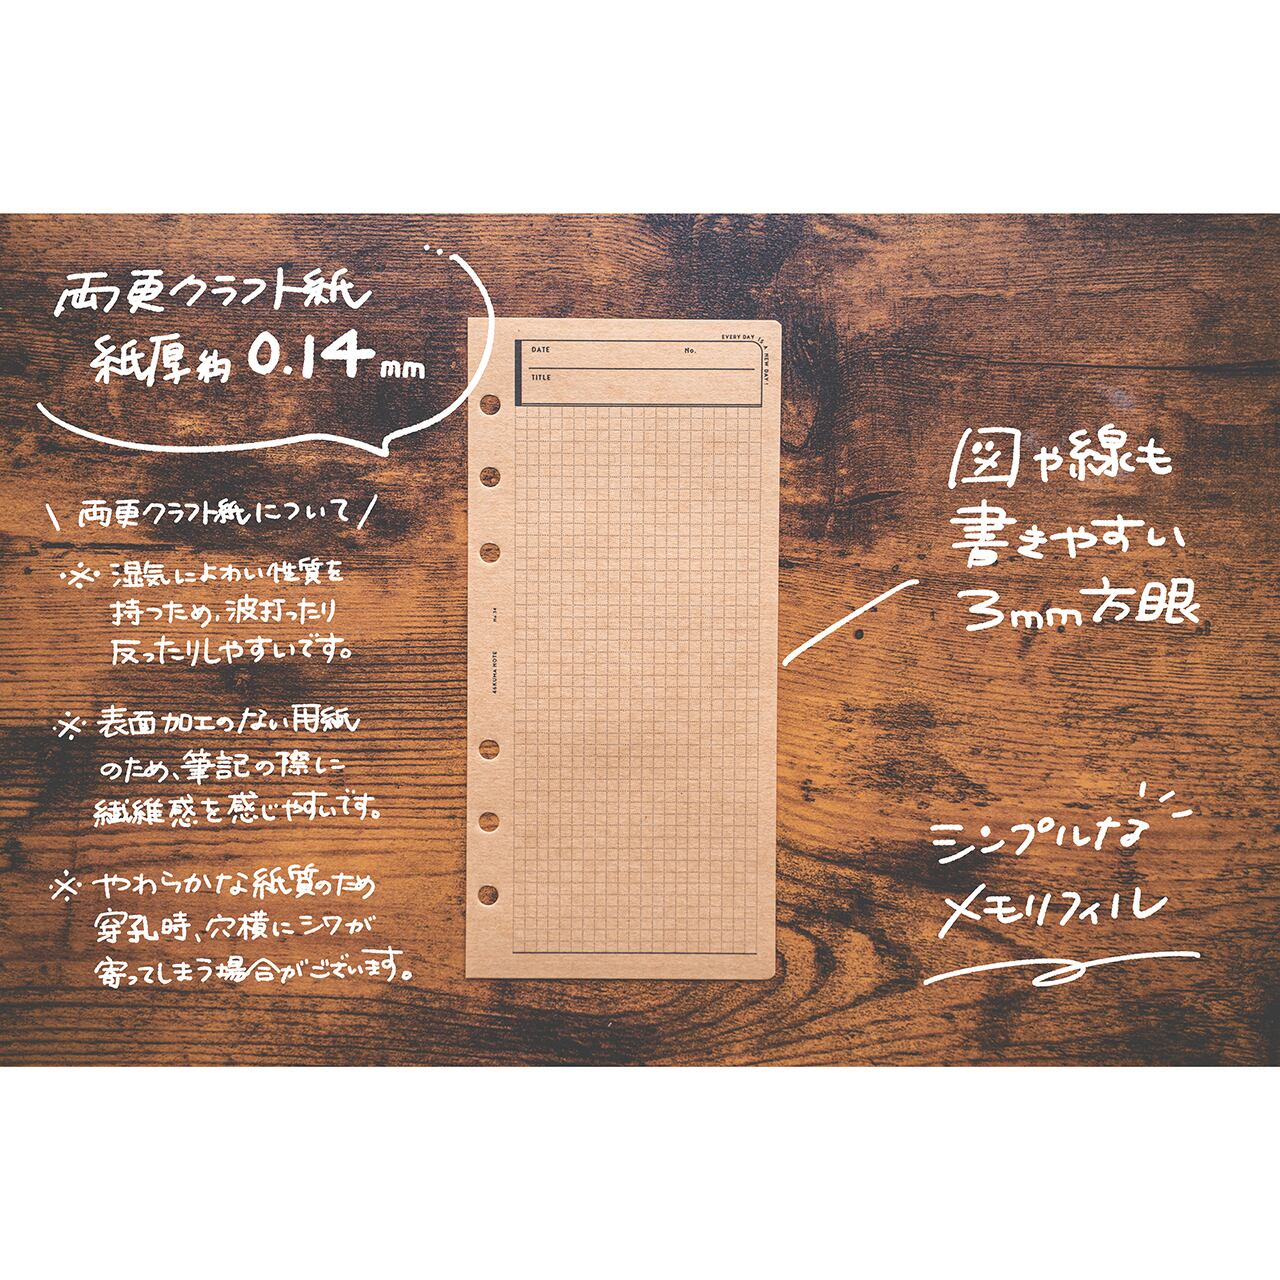 両更クラフト紙
紙厚約0.14mm
\ 両更クラフト紙について /
※ 湿気によわい性質を
持つため、波打ったり
反ったりしやすいです。
※ 表面加工のない用紙
のため、筆記の際に
繊維感を感じやすいです。
※ やわらかな紙質のため
穿孔時、穴横にシワが
寄ってしまう場合がございます。
EVERY DAY IS A NEW DAY!
DATE No.
TITLE
No.34
46KUMA NOTE
図や線も
書きやすい
3mm方眼
シンプルな
メモリフィル